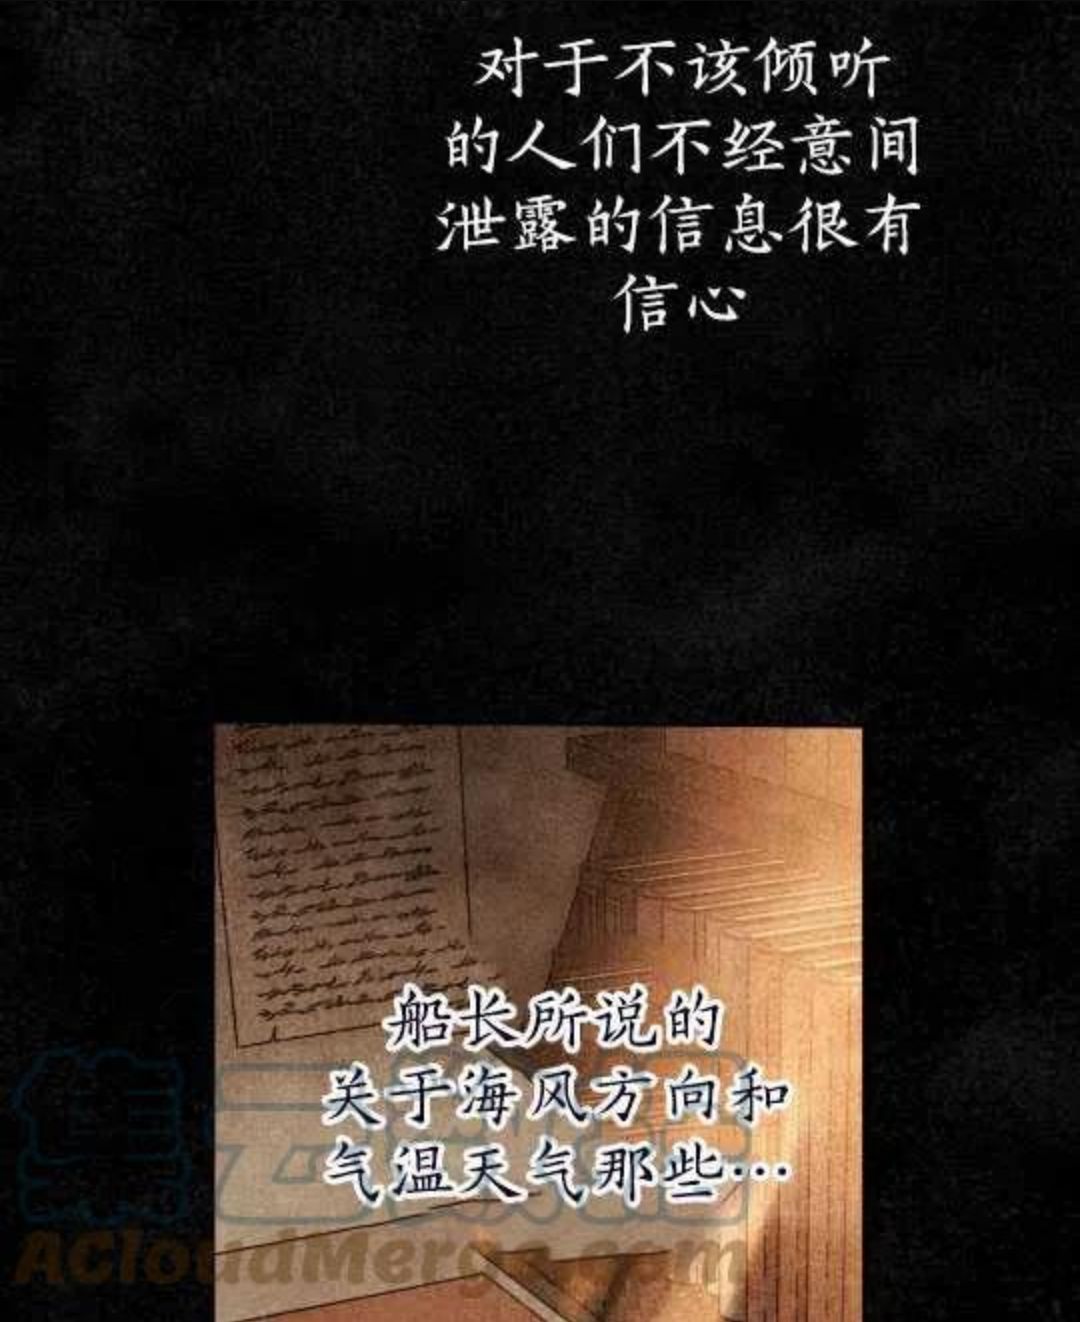 对于不该倾听
的人们不经意间
泄露的信息很有
信心
船长所说的
关于海风方向和
气温天气那些…
ACloudMerge.com